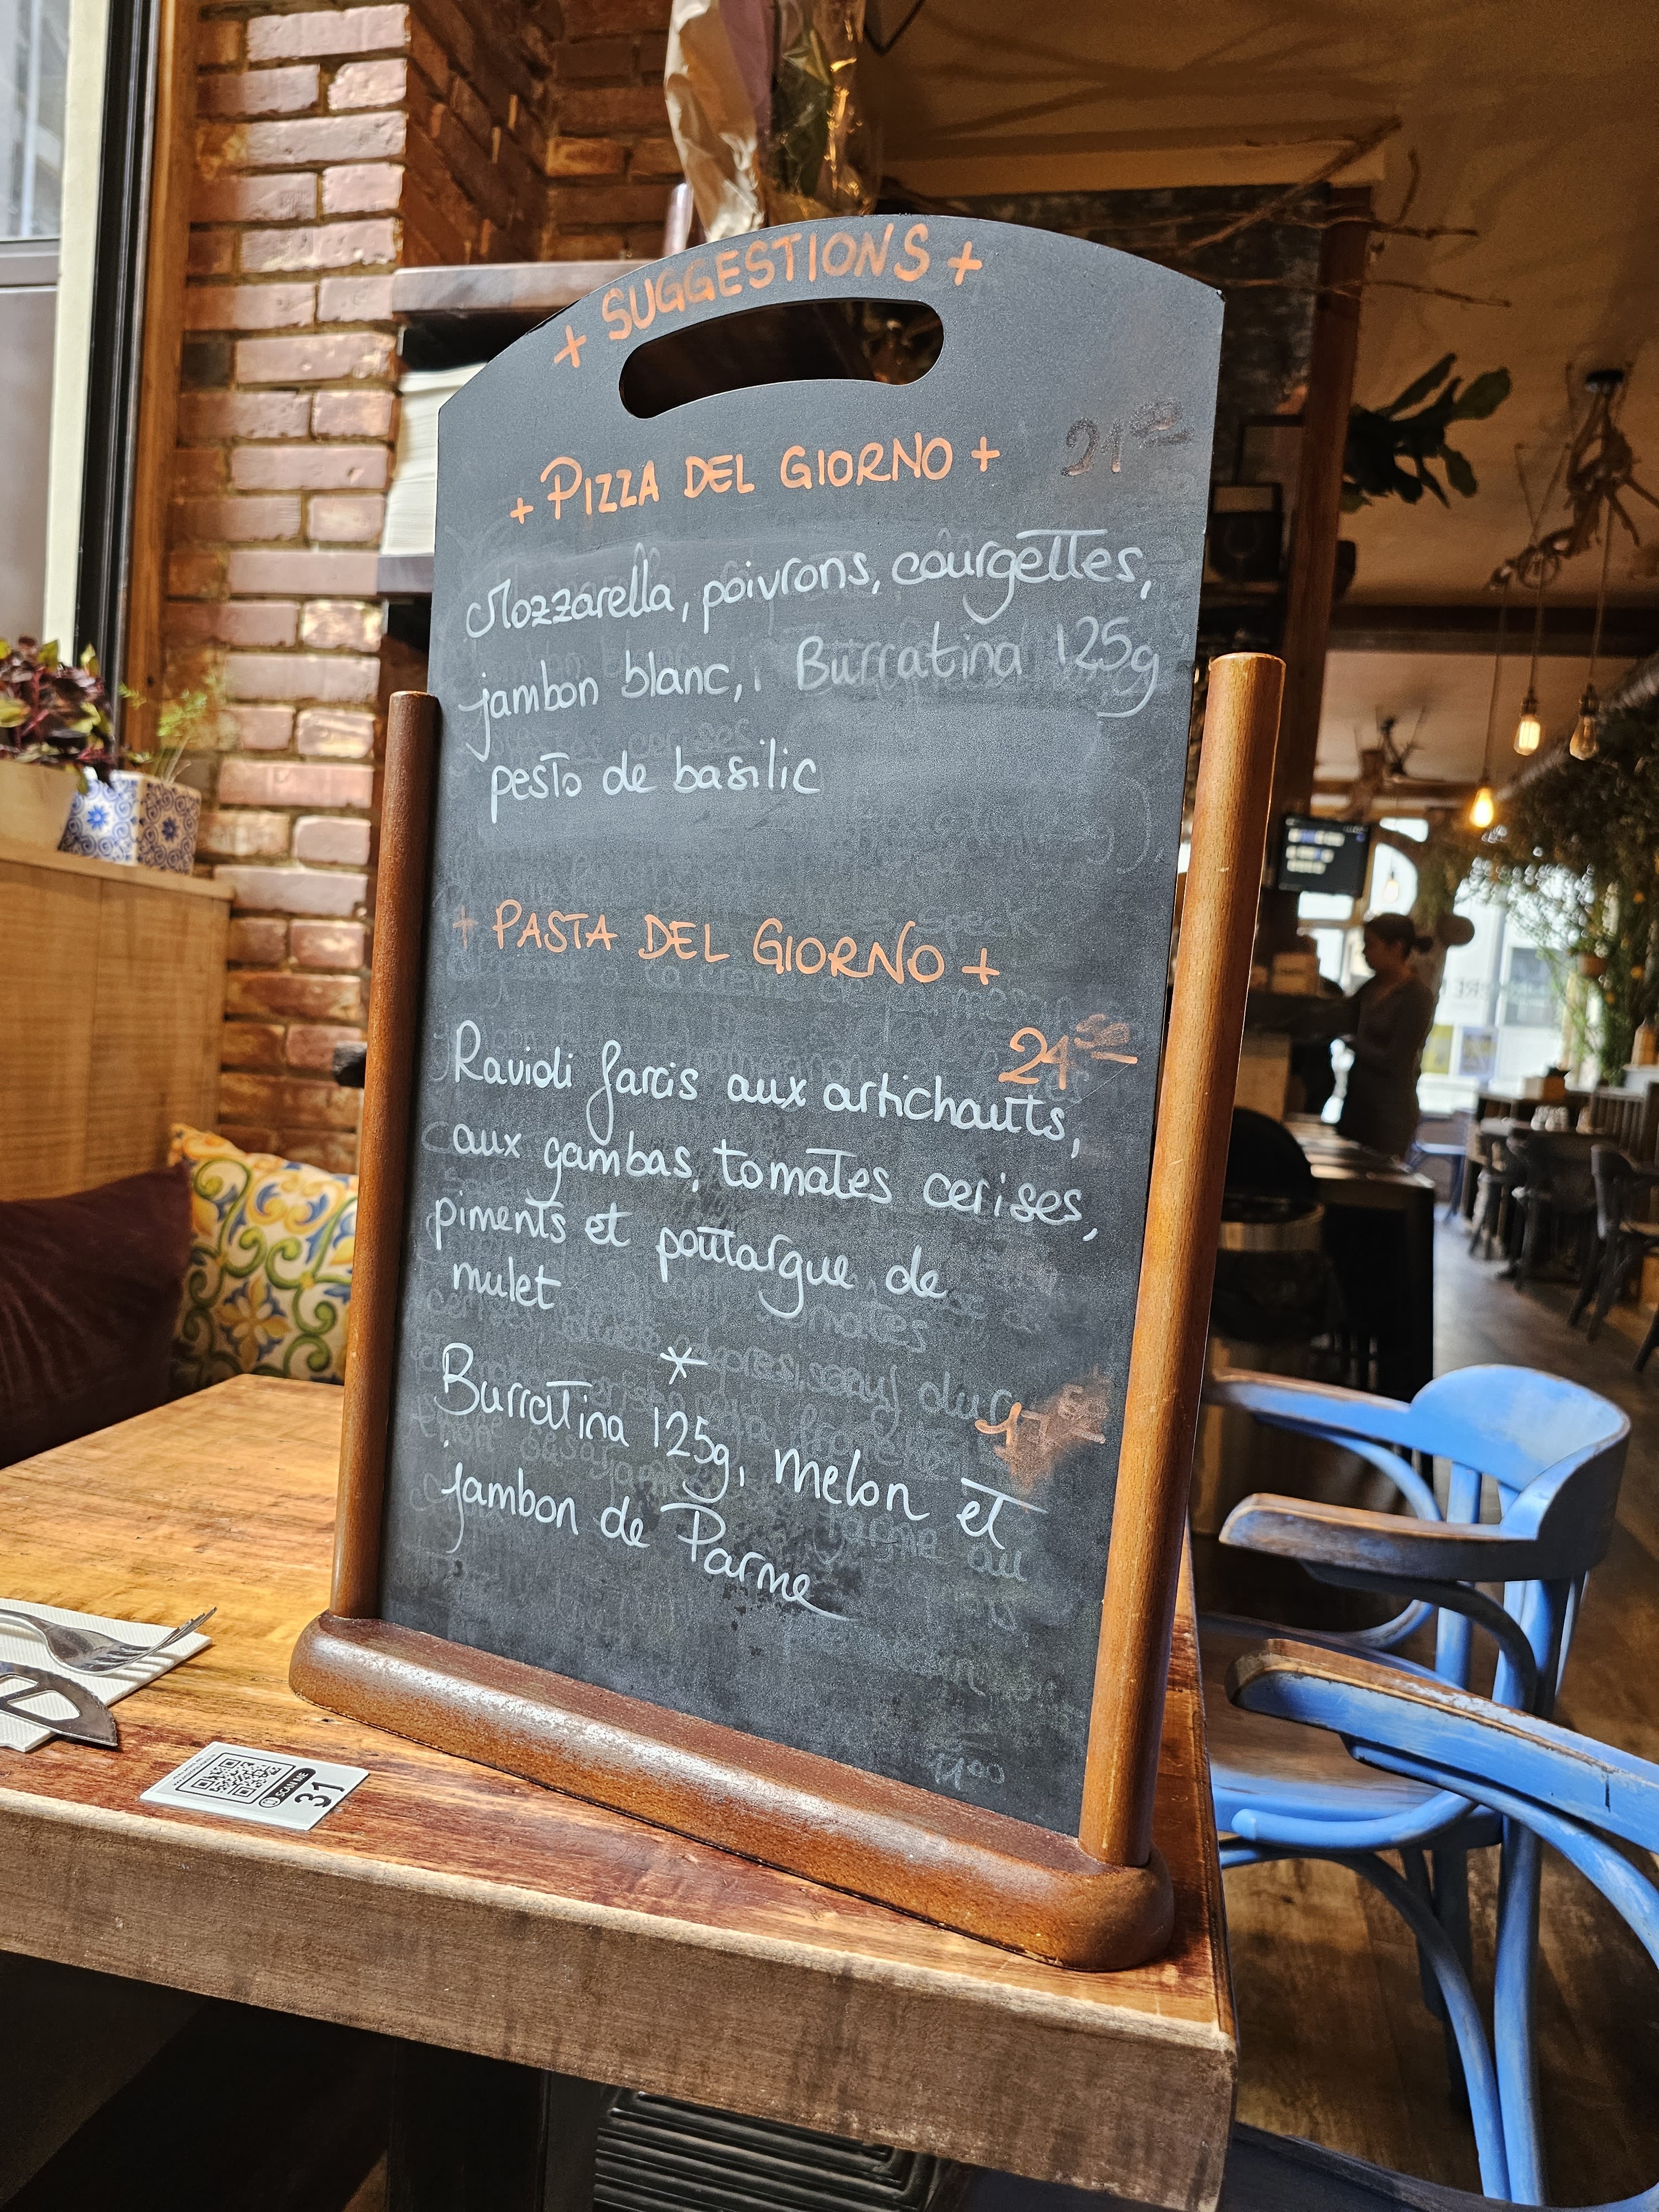 + SUGGESTIONS +
+ PIZZA DEL GIORNO +
21
Mozzarella, poivrons, courgettes,
jambon blanc, Burratina 125g
pesto de basilic
+ PASTA DEL GIORNO +
24⁵⁰
Ravioli farcis aux artichauts,
aux gambas, tomates cerises,
piments et pouttargue de
mulet
*
17
Burratina 125g, melon et
jambon de Parme
SCAN ME
31